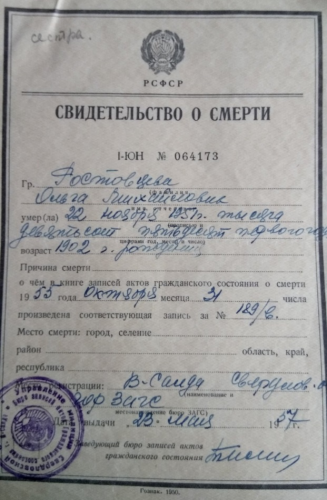 сестра.
РСФСР
СВИДЕТЕЛЬСТВО О СМЕРТИ
I-ЮН № 064173
Гр. Ростовцева
Ольга
умер(ла) 22 ноября 1951г. тысяча
девятьсот пятьдесят первого года
возраст 1902 г. рождения
Причина смерти
о чём в книге записей актов гражданского состояния о смерти
1955 года Октября месяца 31 числа
произведена соответствующая запись за № 189/в.
Место смерти: город, селение
район область, край,
республика
регистрации: В-Салда
ЗАГС
выдачи 23 мая 1957 г.
заведующий бюро записей актов
гражданского состояния
Гознак. 1950.